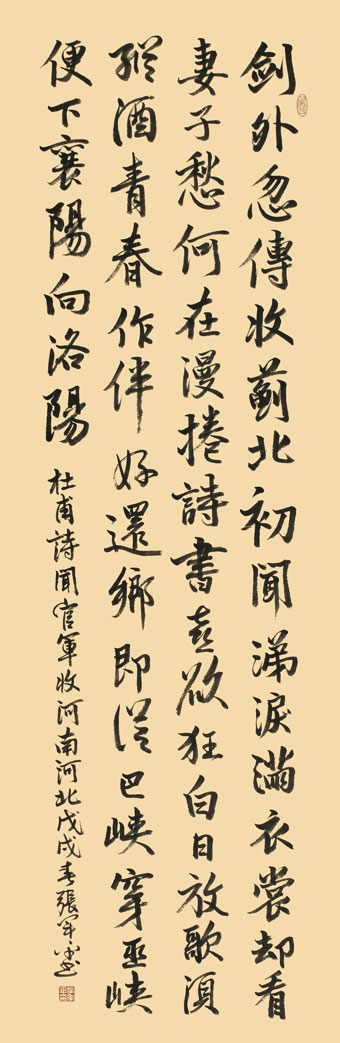 剑外忽傳收蓟北初聞涕淚滿衣裳却看
妻子愁何在漫捲詩書喜欲狂白日放歌須
縱酒青春作伴好還鄉即從巴峽穿巫峽
便下襄陽向洛陽
杜甫詩聞官軍收河南河北戊戌春張軍